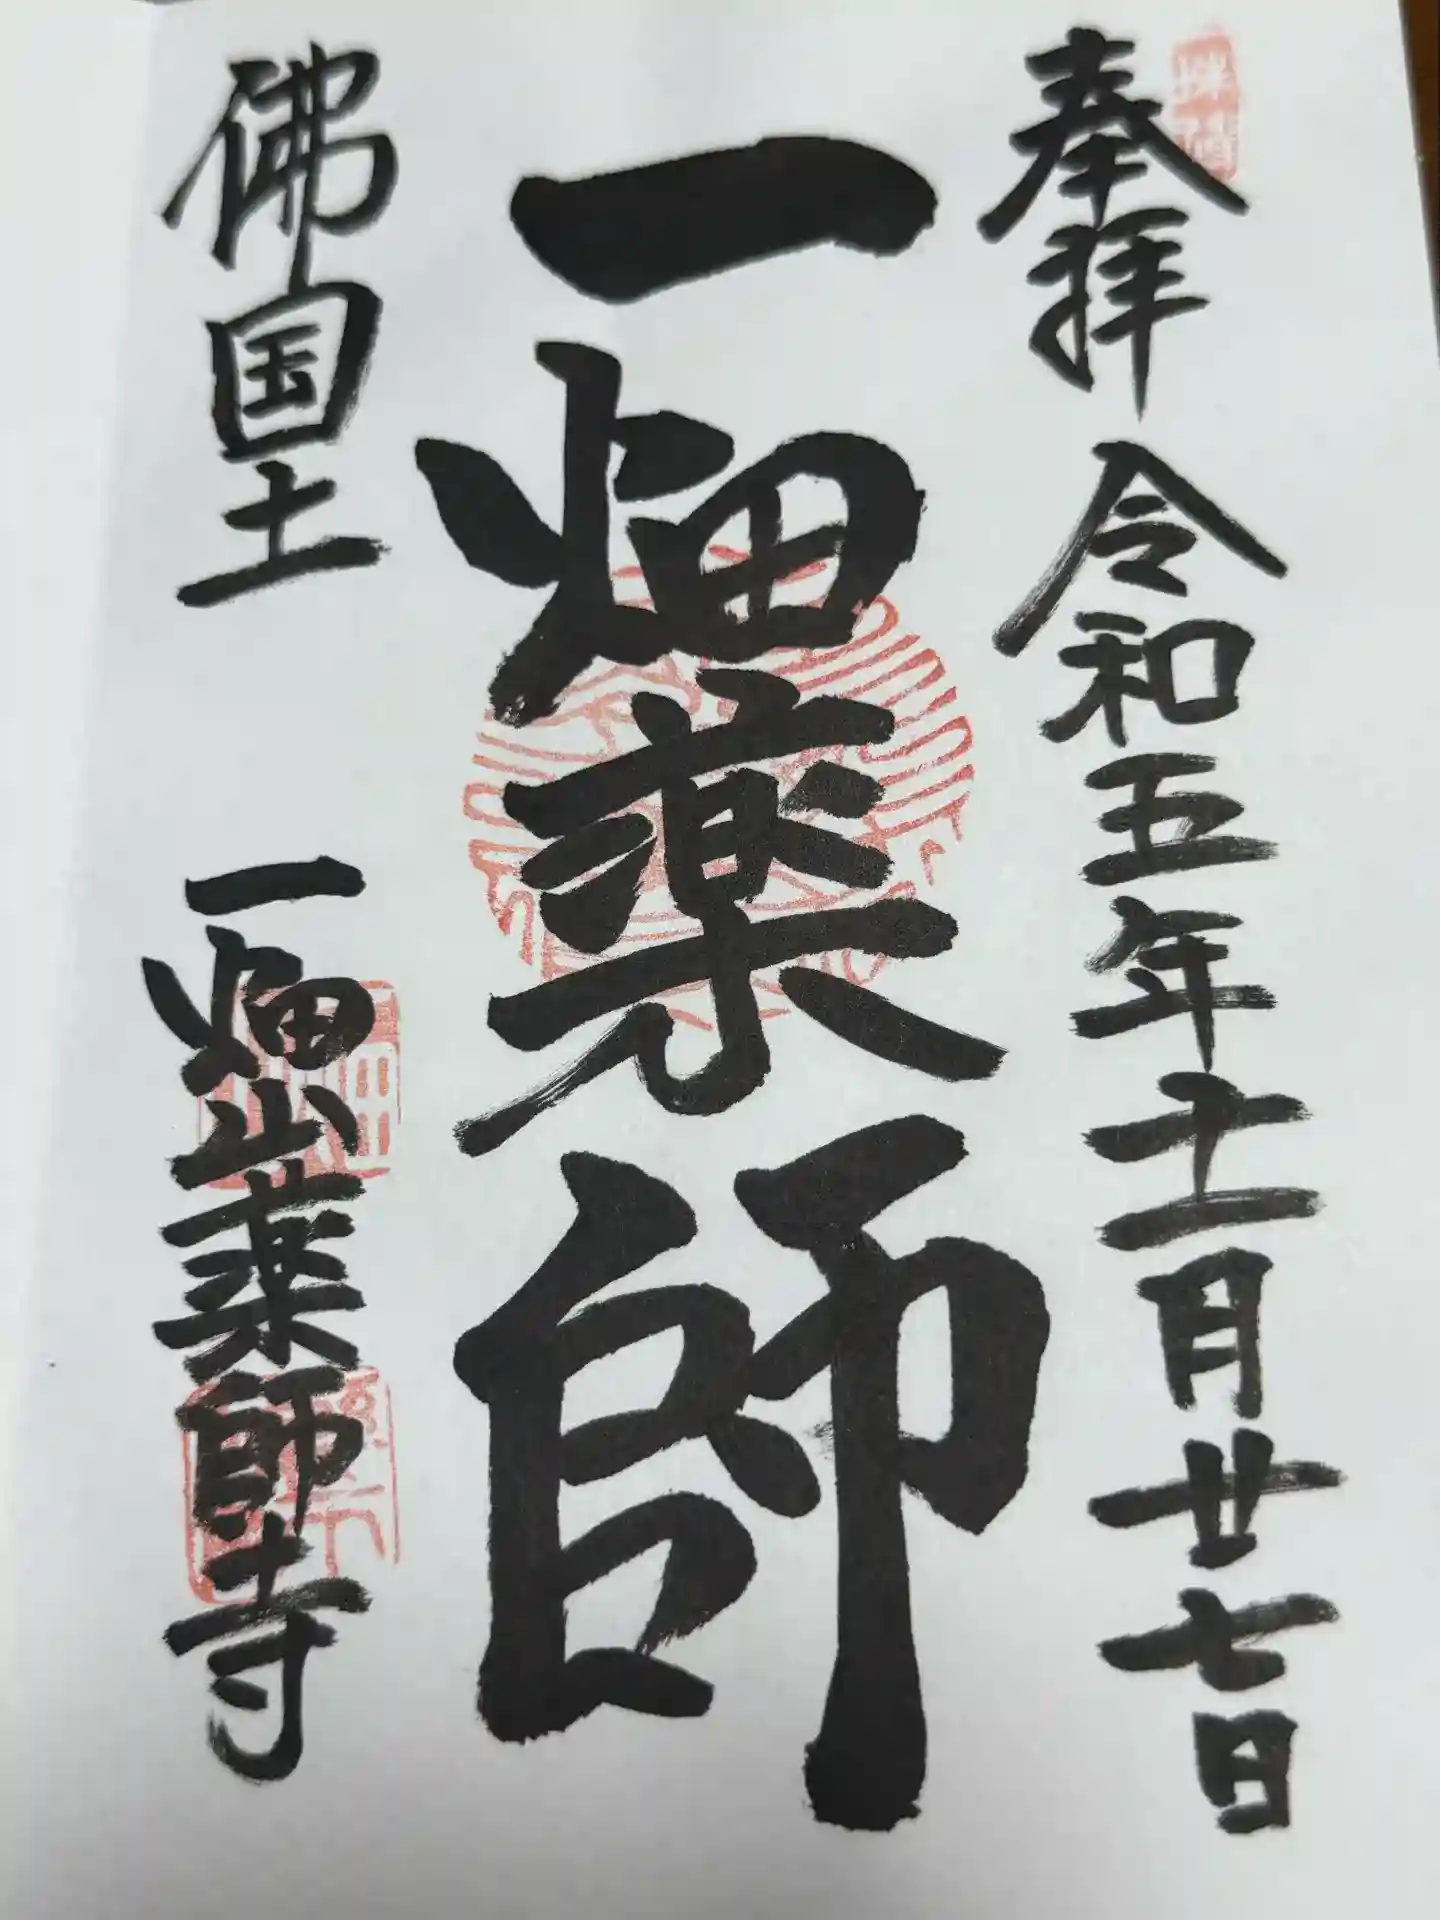 奉拝 令和五年十一月廿七日
一畑薬師
佛国土
一畑山薬師寺